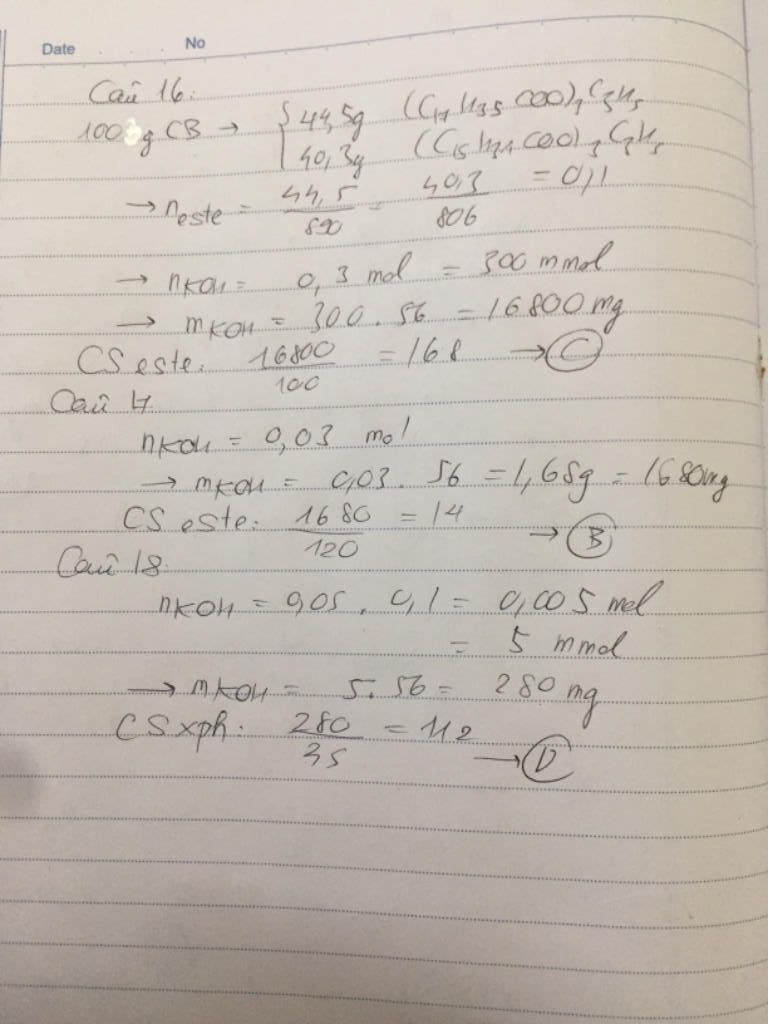 Date No
Câu 16:
100 g CB → { 44,5g (C17H35COO)3C3H5
40,3g (C15H31COO)3C3H5
→ neste = 44,5/890 = 40,3/806 = 0,1
→ nKOH = 0,3 mol = 300 mmol
→ mKOH = 300 . 56 = 16800 mg
CS este: 16800/100 = 168 → C
Câu 17
nKOH = 0,03 mol
→ mKOH = 0,03 . 56 = 1,68g = 1680mg
CS este: 1680/120 = 14 → B
Câu 18:
nKOH = 0,05 . 0,1 = 0,005 mol
= 5 mmol
→ mKOH = 5.56 = 280 mg
CSxph: 280/35 = 112 → D